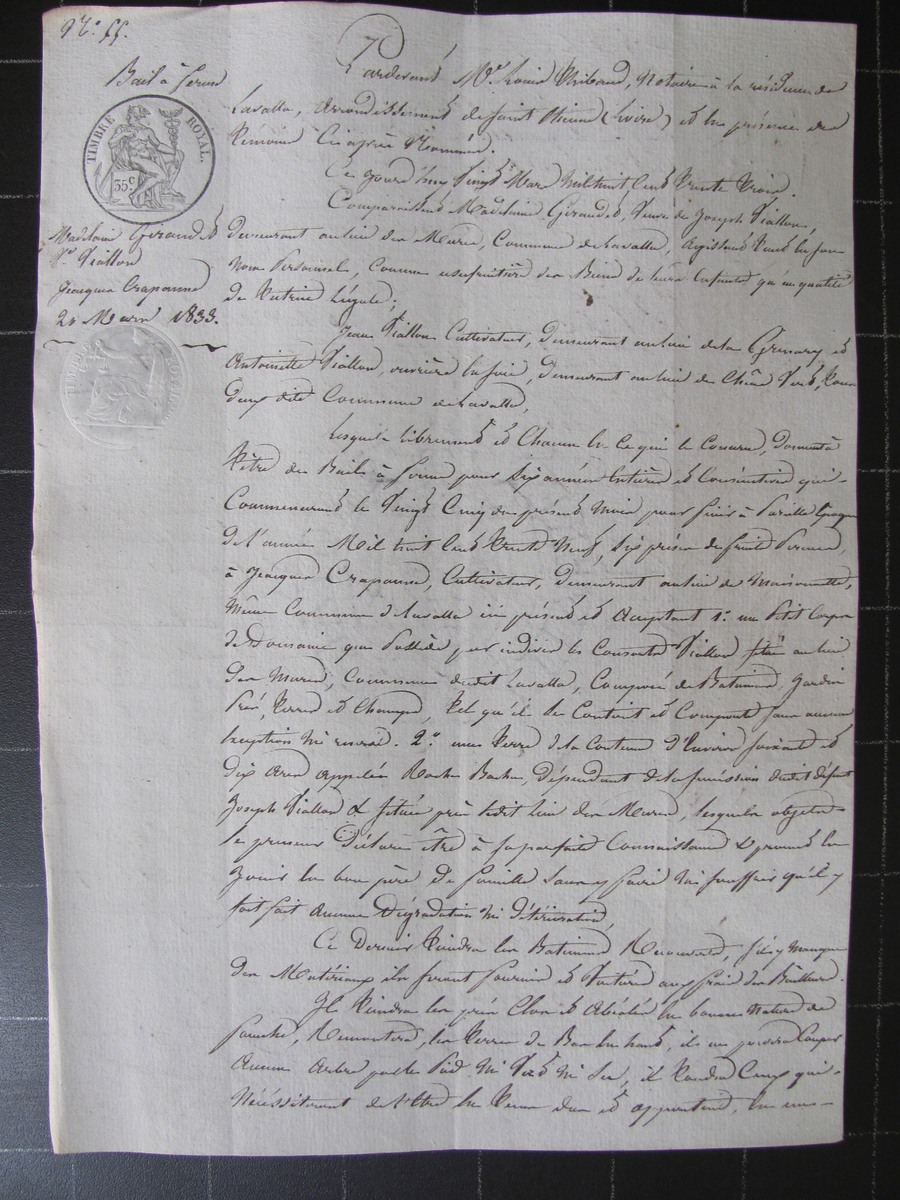 N.o 55.
Bail à ferme
TIMBRE ROYAL.
35 c
Madelaine Giraudet
Ve Viallon
Jacques Crapanne
20 Mars 1833.
Pardevant Me Louis Thibaud, Notaire à la résidence de
Lavalla, arrondissement de saint Etienne (Loire) et en présence des
témoins Ci après Nommés.
Ce Jourd'huy Vingt Mars Mil huit Cent trente trois.
Comparaissent Madelaine Giraudet, Veuve de Joseph Viallon,
demeurant au lieu des Mures, Commune de Lavalla, agissant tant en son
Nom Personnel, Comme usufruitière des Biens de leurs Enfants qu'en qualité
De tutrice légale;
Jean Viallon Cultivateur, demeurant au lieu de la et
Antoinette Viallon, ouvrière en soie, demeurant au lieu de Chêne Vert, tous
deux dite Commune de Lavalla,
lesquels librement et Chacun en Ce qui le Concerne, donnent à
titre de Bail à ferme pour six années Entières et Consécutives qui
Commenceront le Vingt Cinq du présent Mois pour finir à Pareille Epoque
de l'année Mil huit Cent trente Neuf, six prises de fruits Perçues,
à Jacques Crapanne, Cultivateur, demeurant au lieu de Maisonnette,
même Commune de Lavalla ici présent et acceptant 1.o un Petit Corps
de Domaine que Possède par indivis les Consorts Viallon situé au lieu
des Mures, Commune dudit Lavalla, Composé de Batiments, Jardin
Prés, Terres et Champs, tel qu'il se Contient et Comporte sans aucune
Exception Ni réserve. 2.o une Terre de la Contenue d'Environ soixante et
dix ares appelée, dépendant de la succession dudit défunt
Joseph Viallon & située près ledit lieu des Mures, lesquels objets
le preneur Déclare être à sa parfaite Connaissance & promet en
Jouir en bon père de famille sans y faire Ni souffrir qu'il y
soit fait aucune Dégradation Ni détérioration,
Ce Dernier Tiendra les Batiments Recouverts, s'il y manque
des Matériaux ils seront fournis et Voiturés aux frais des Bailleurs.
Il Tiendra les prés Clos et en bonne Nature de
fauche, Remontera les Terres de Bas en haut, il ne pourra Couper
Aucun arbre par le Pied Ni Vert Ni Sec, il Tondra Ceux qui
Nécessiteront de l'être en Tems dus et appartient, en une